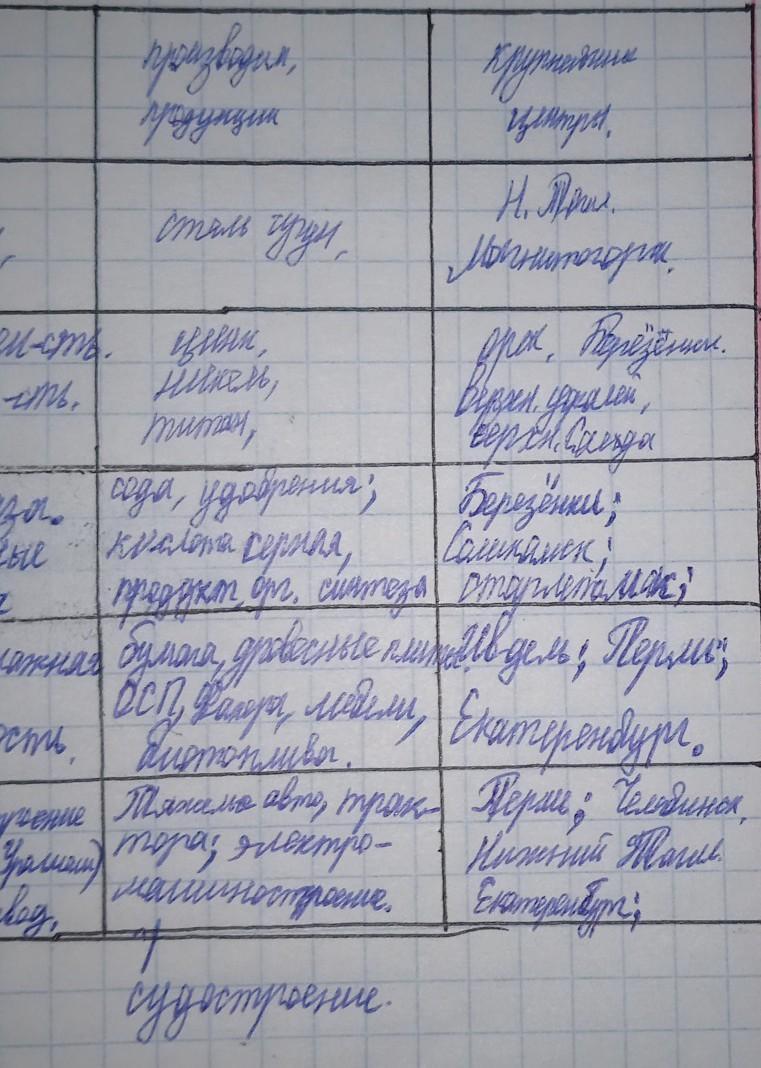 производим,
продукции
крупнейшие
центры.
сталь чугун,
Н. Тагил.
Магнитогорск.
м-сть.
-сть.
цинк,
никель,
титан,
орск, Берёзёнки.
Верхн. уфалей,
верхн. Салда
за.
ые
сода, удобрения;
кислота серная,
продукт орг. синтеза
Березёнки;
Соликамск;
стерлетомак;
мажная
ость.
бумага, древесные плиты.
ОСП, Фанера, мебели,
биотопливы.
Ивдель; Пермь;
Екатеренбург.
роение
Уралмаш)
вод.
Тяжелые авто, трак-
тора; электро-
машиностроение.
Перми; Челябинск,
Нижний Тагил.
Екатеренбург;
судостроение.